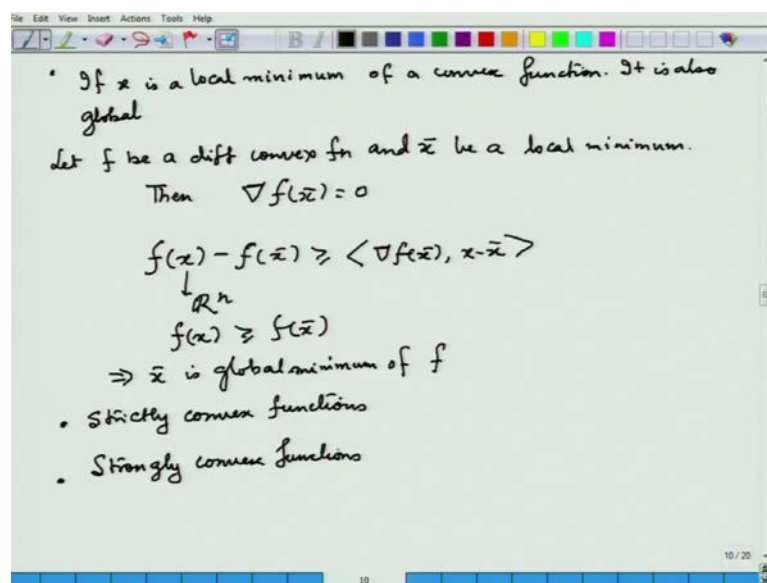 File Edit View Insert Actions Tools Help
B I
• If x is a local minimum of a convex function. It is also
global
Let f be a diff convex fn and x̄ be a local minimum.
Then ∇f(x̄) = 0
f(x) - f(x̄) ≥ <∇f(x̄), x-x̄>
↓
ℝⁿ
f(x) ≥ f(x̄)
⇒ x̄ is global minimum of f
• Strictly convex functions
• Strongly convex functions
10 / 20
10